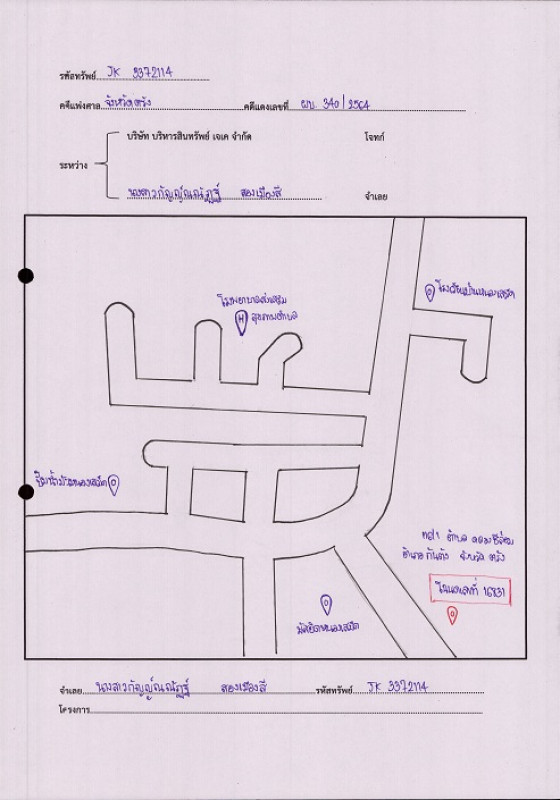 รหัสทรัพย์ JK 3372114
คดีแพ่งศาล จังหวัดตรัง คดีแดงเลขที่ ผบ. 340/2564
บริษัท บริหารสินทรัพย์ เจเค จำกัด โจทก์
ระหว่าง
นางสาวกัญญ์ณณัฏฐ์ สองเมืองสี จำเลย
โรงเรียนบ้านหนองเสม็ด
โรงพยาบาลส่งเสริม
สุขภาพตำบล
H
หนองเสม็ด
หมู่ 1 ตำบล คลองชีล้อม
อำเภอ กันตัง จังหวัด ตรัง
โฉนดเลขที่ 16831
มัสยิดหนองเสม็ด
จำเลย นางสาวกัญญ์ณณัฏฐ์ สองเมืองสี รหัสทรัพย์ JK 3372114
โครงการ